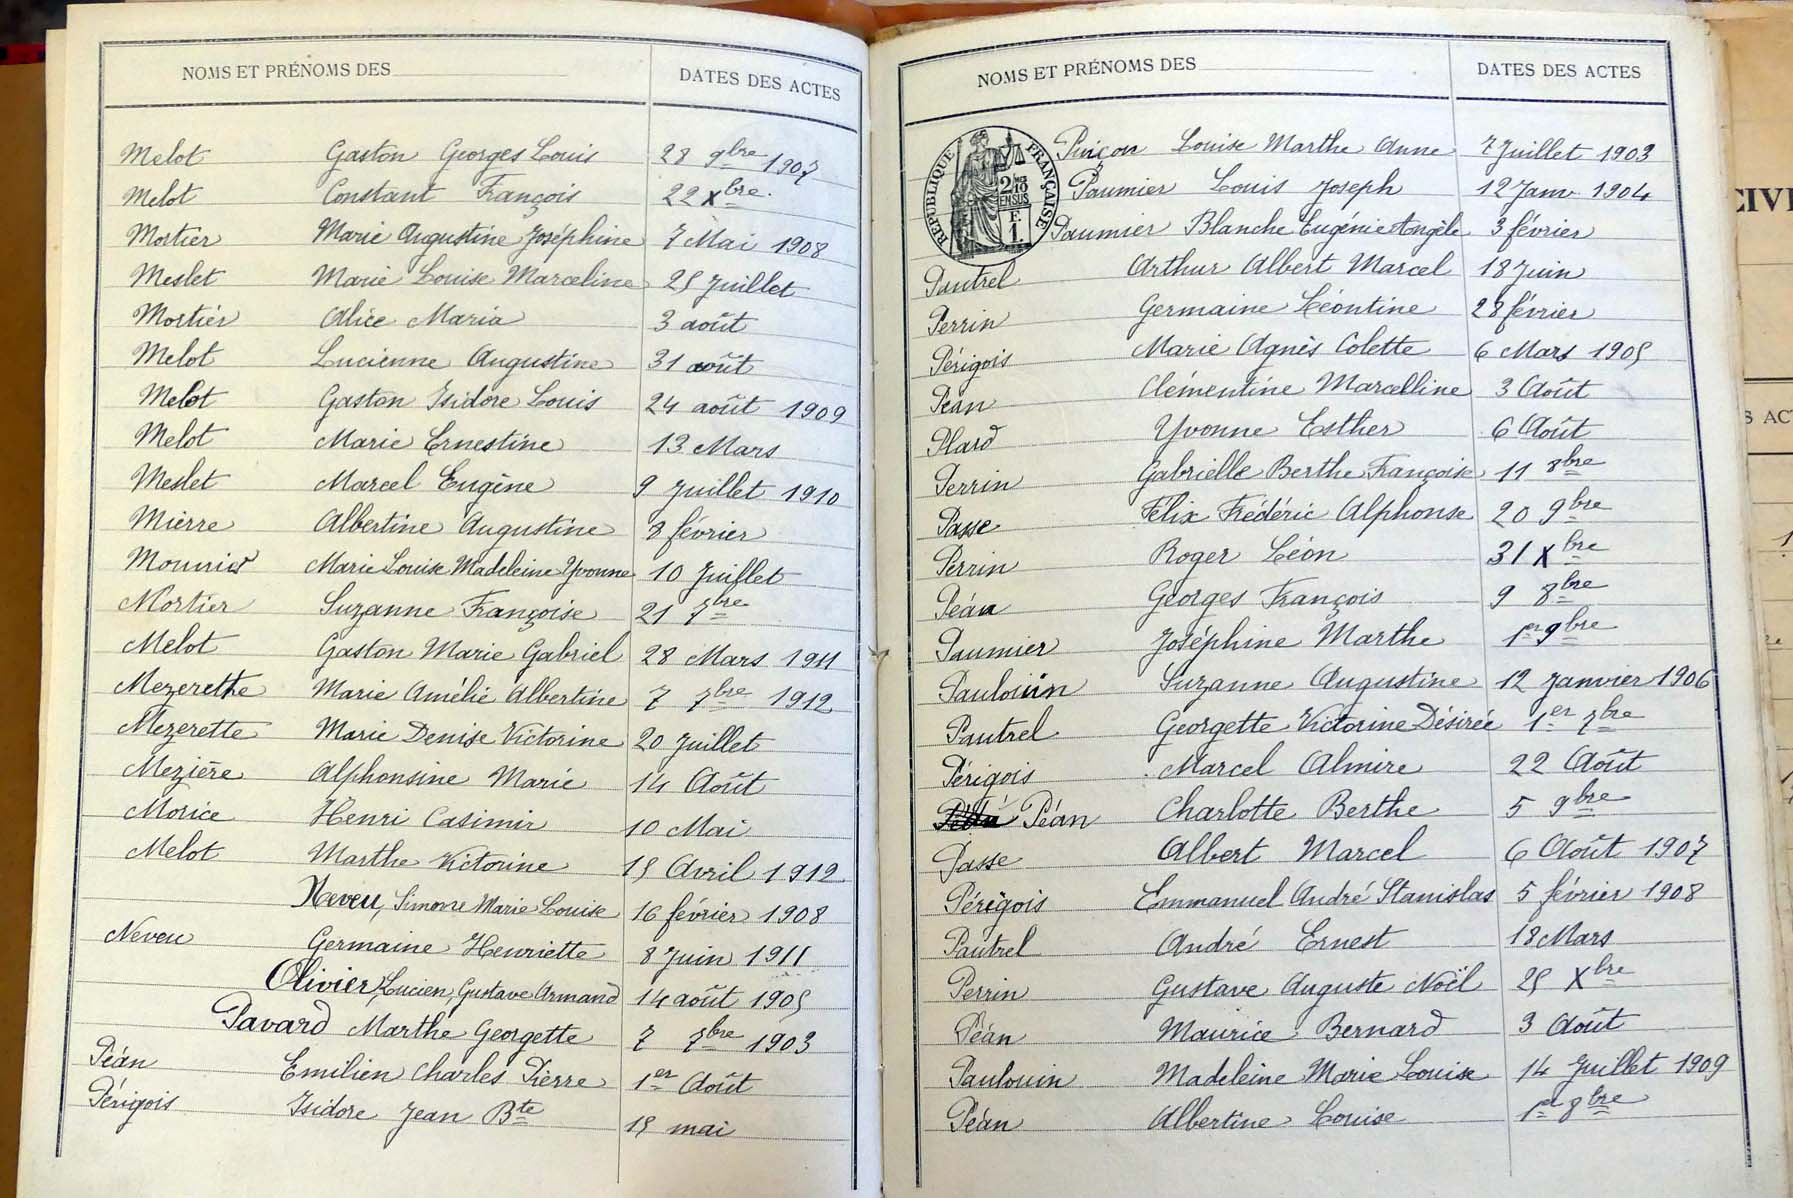 NOMS ET PRÉNOMS DES DATES DES ACTES
Melot Gaston Georges Louis 28 9bre 1907
Melot Constant François 22 Xbre
Mortier Marie Augustine Joséphine 7 Mai 1908
Meslet Marie Louise Marceline 25 Juillet
Mortier Alice Maria 3 août
Melot Lucienne Augustine 31 août
Melot Gaston Isidore Louis 24 août 1909
Melot Marie Ernestine 13 Mars
Meslet Marcel Eugène 9 Juillet 1910
Mierre Albertine Augustine 8 février
Mounier Marie Louise Madeleine Yvonne 10 Juillet
Mortier Suzanne Françoise 21 7bre
Melot Gaston Marie Gabriel 28 Mars 1911
Mezerethe Marie Amélie Albertine 7 7bre 1912
Mezerette Marie Denise Victorine 20 Juillet
Mezière Alphonsine Marie 14 Août
Morice Henri Casimir 10 Mai
Melot Marthe Victorine 15 Avril 1912
Neveu, Simone Marie Louise 16 février 1908
Neveu Germaine Henriette 8 Juin 1911
Olivier, Lucien, Gustave Armand 14 août 1905
Pavard Marthe Georgette 7 7bre 1903
Péan Emilien Charles Pierre 1er Août
Périgois Isidore Jean Bte 15 mai
NOMS ET PRÉNOMS DES DATES DES ACTES
RÉPUBLIQUE FRANÇAISE
2/10
EN SUS
F.
1.
Pinçon Louise Marthe Anne 7 Juillet 1903
Paumier Louis Joseph 12 Janv. 1904
Paumier Blanche Eugénie Angèle 3 février
Pautrel Arthur Albert Marcel 18 Juin
Perrin Germaine Léontine 28 février
Périgois Marie Agnès Colette 6 Mars 1905
Péan Clémentine Marcelline 3 Août
Plard Yvonne Esther 6 Août
Perrin Gabrielle Berthe Françoise 11 8bre
Passe Félix Frédéric Alphonse 20 9bre
Perrin Roger Léon 31 Xbre
Péan Georges François 9 8bre
Paumier Joséphine Marthe 1er 9bre
Paulouin Suzanne Augustine 12 Janvier 1906
Pautrel Georgette Victorine Désirée 1er 7bre
Périgois Marcel Almire 22 Août
Péan Charlotte Berthe 5 9bre
Passe Albert Marcel 6 Août 1907
Périgois Emmanuel André Stanislas 5 février 1908
Pautrel André Ernest 18 Mars
Perrin Gustave Auguste Noël 25 Xbre
Péan Maurice Bernard 3 Août
Paulouin Madeleine Marie Louise 14 Juillet 1909
Péan Albertine Louise 1er 8bre
CIV
S AC